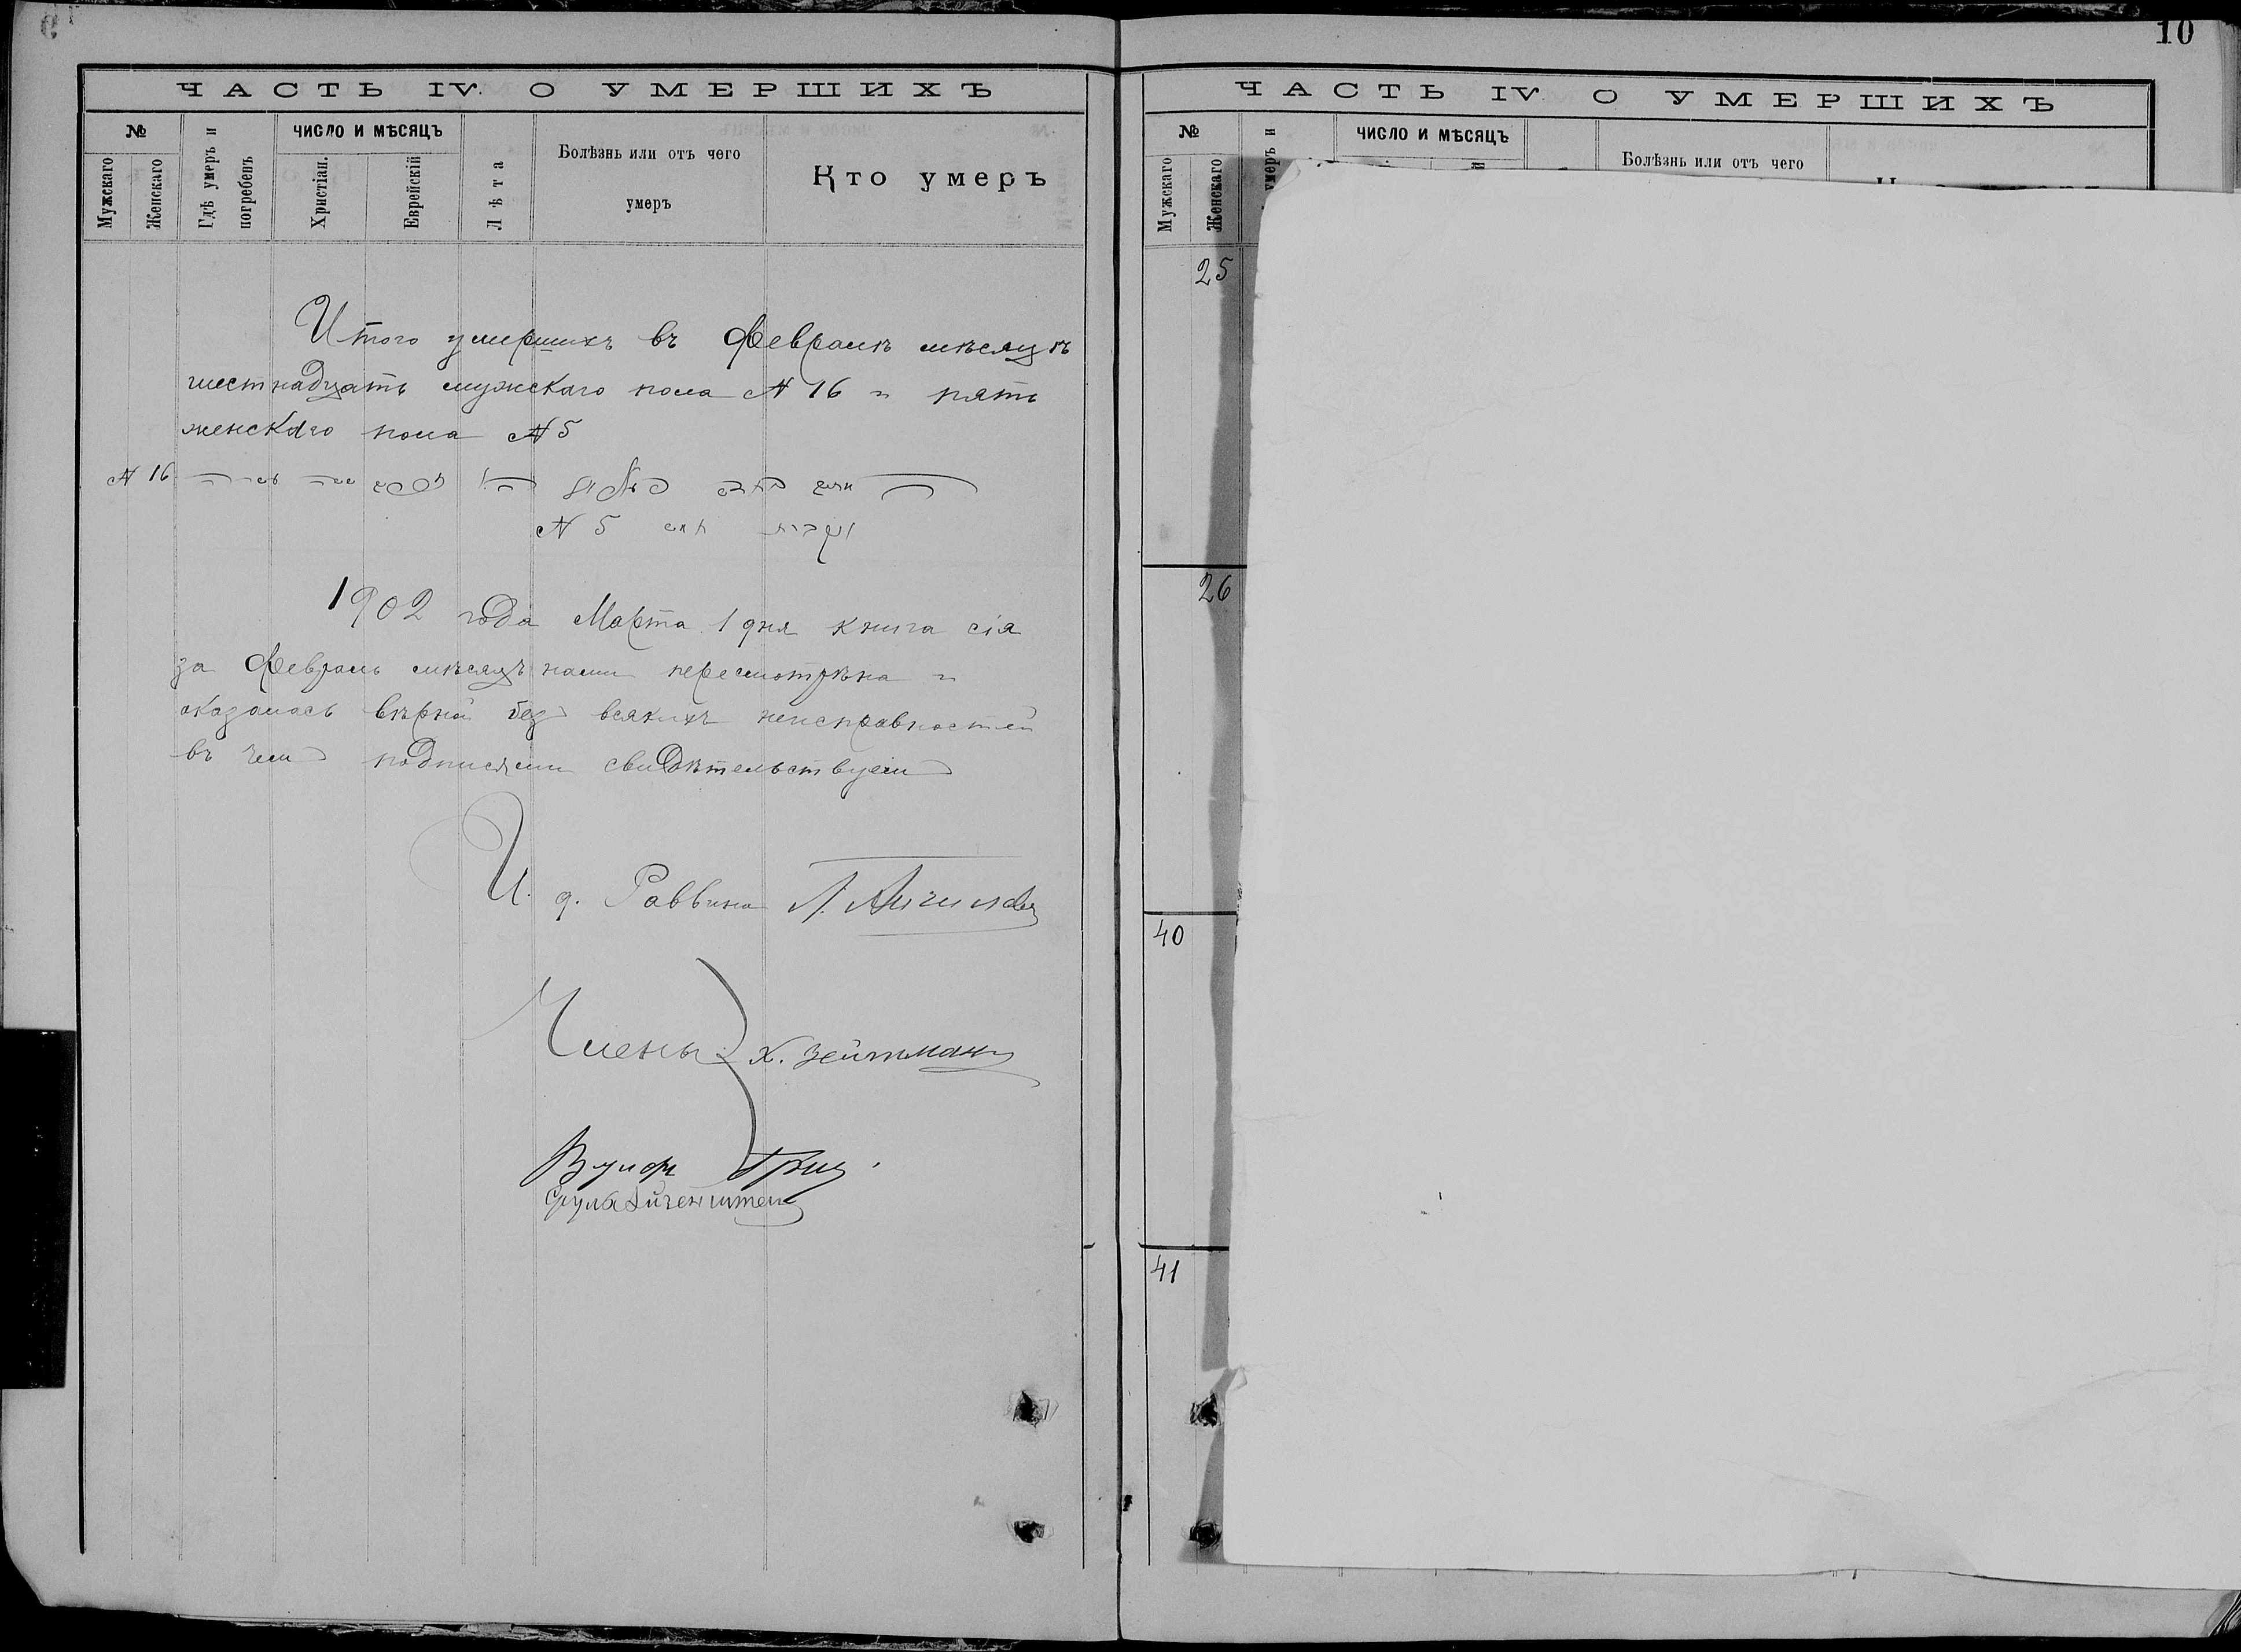 ЧАСТЬ IV. О УМЕРШИХЪ
№
Мужскаго
Женскаго
Гдѣ умеръ и погребенъ
ЧИСЛО И МѢСЯЦЪ
Христіан.
Еврейскій
Лѣта
Болѣзнь или отъ чего
умеръ
Кто умеръ
Итого умершихъ въ Февралѣ мѣсяцѣ
шестнадцать мужскаго пола № 16 и пять
женскаго пола № 5
№ 16
№ 5
1902 года Марта 1 дня книга сія
за Февраль мѣсяцъ нами пересмотрѣна и
оказалась вѣрной безъ всякихъ неисправностей
въ чемъ подписями свидѣтельствуемъ
И. д. Раввина Л.
Члены: Х. Зейтманъ
Вульф Гриц
Срулъ
10
ЧАСТЬ IV. О УМЕРШИХЪ
№
Мужскаго
Женскаго
умеръ и
ЧИСЛО И МѢСЯЦЪ
Болѣзнь или отъ чего
25
26
40
41